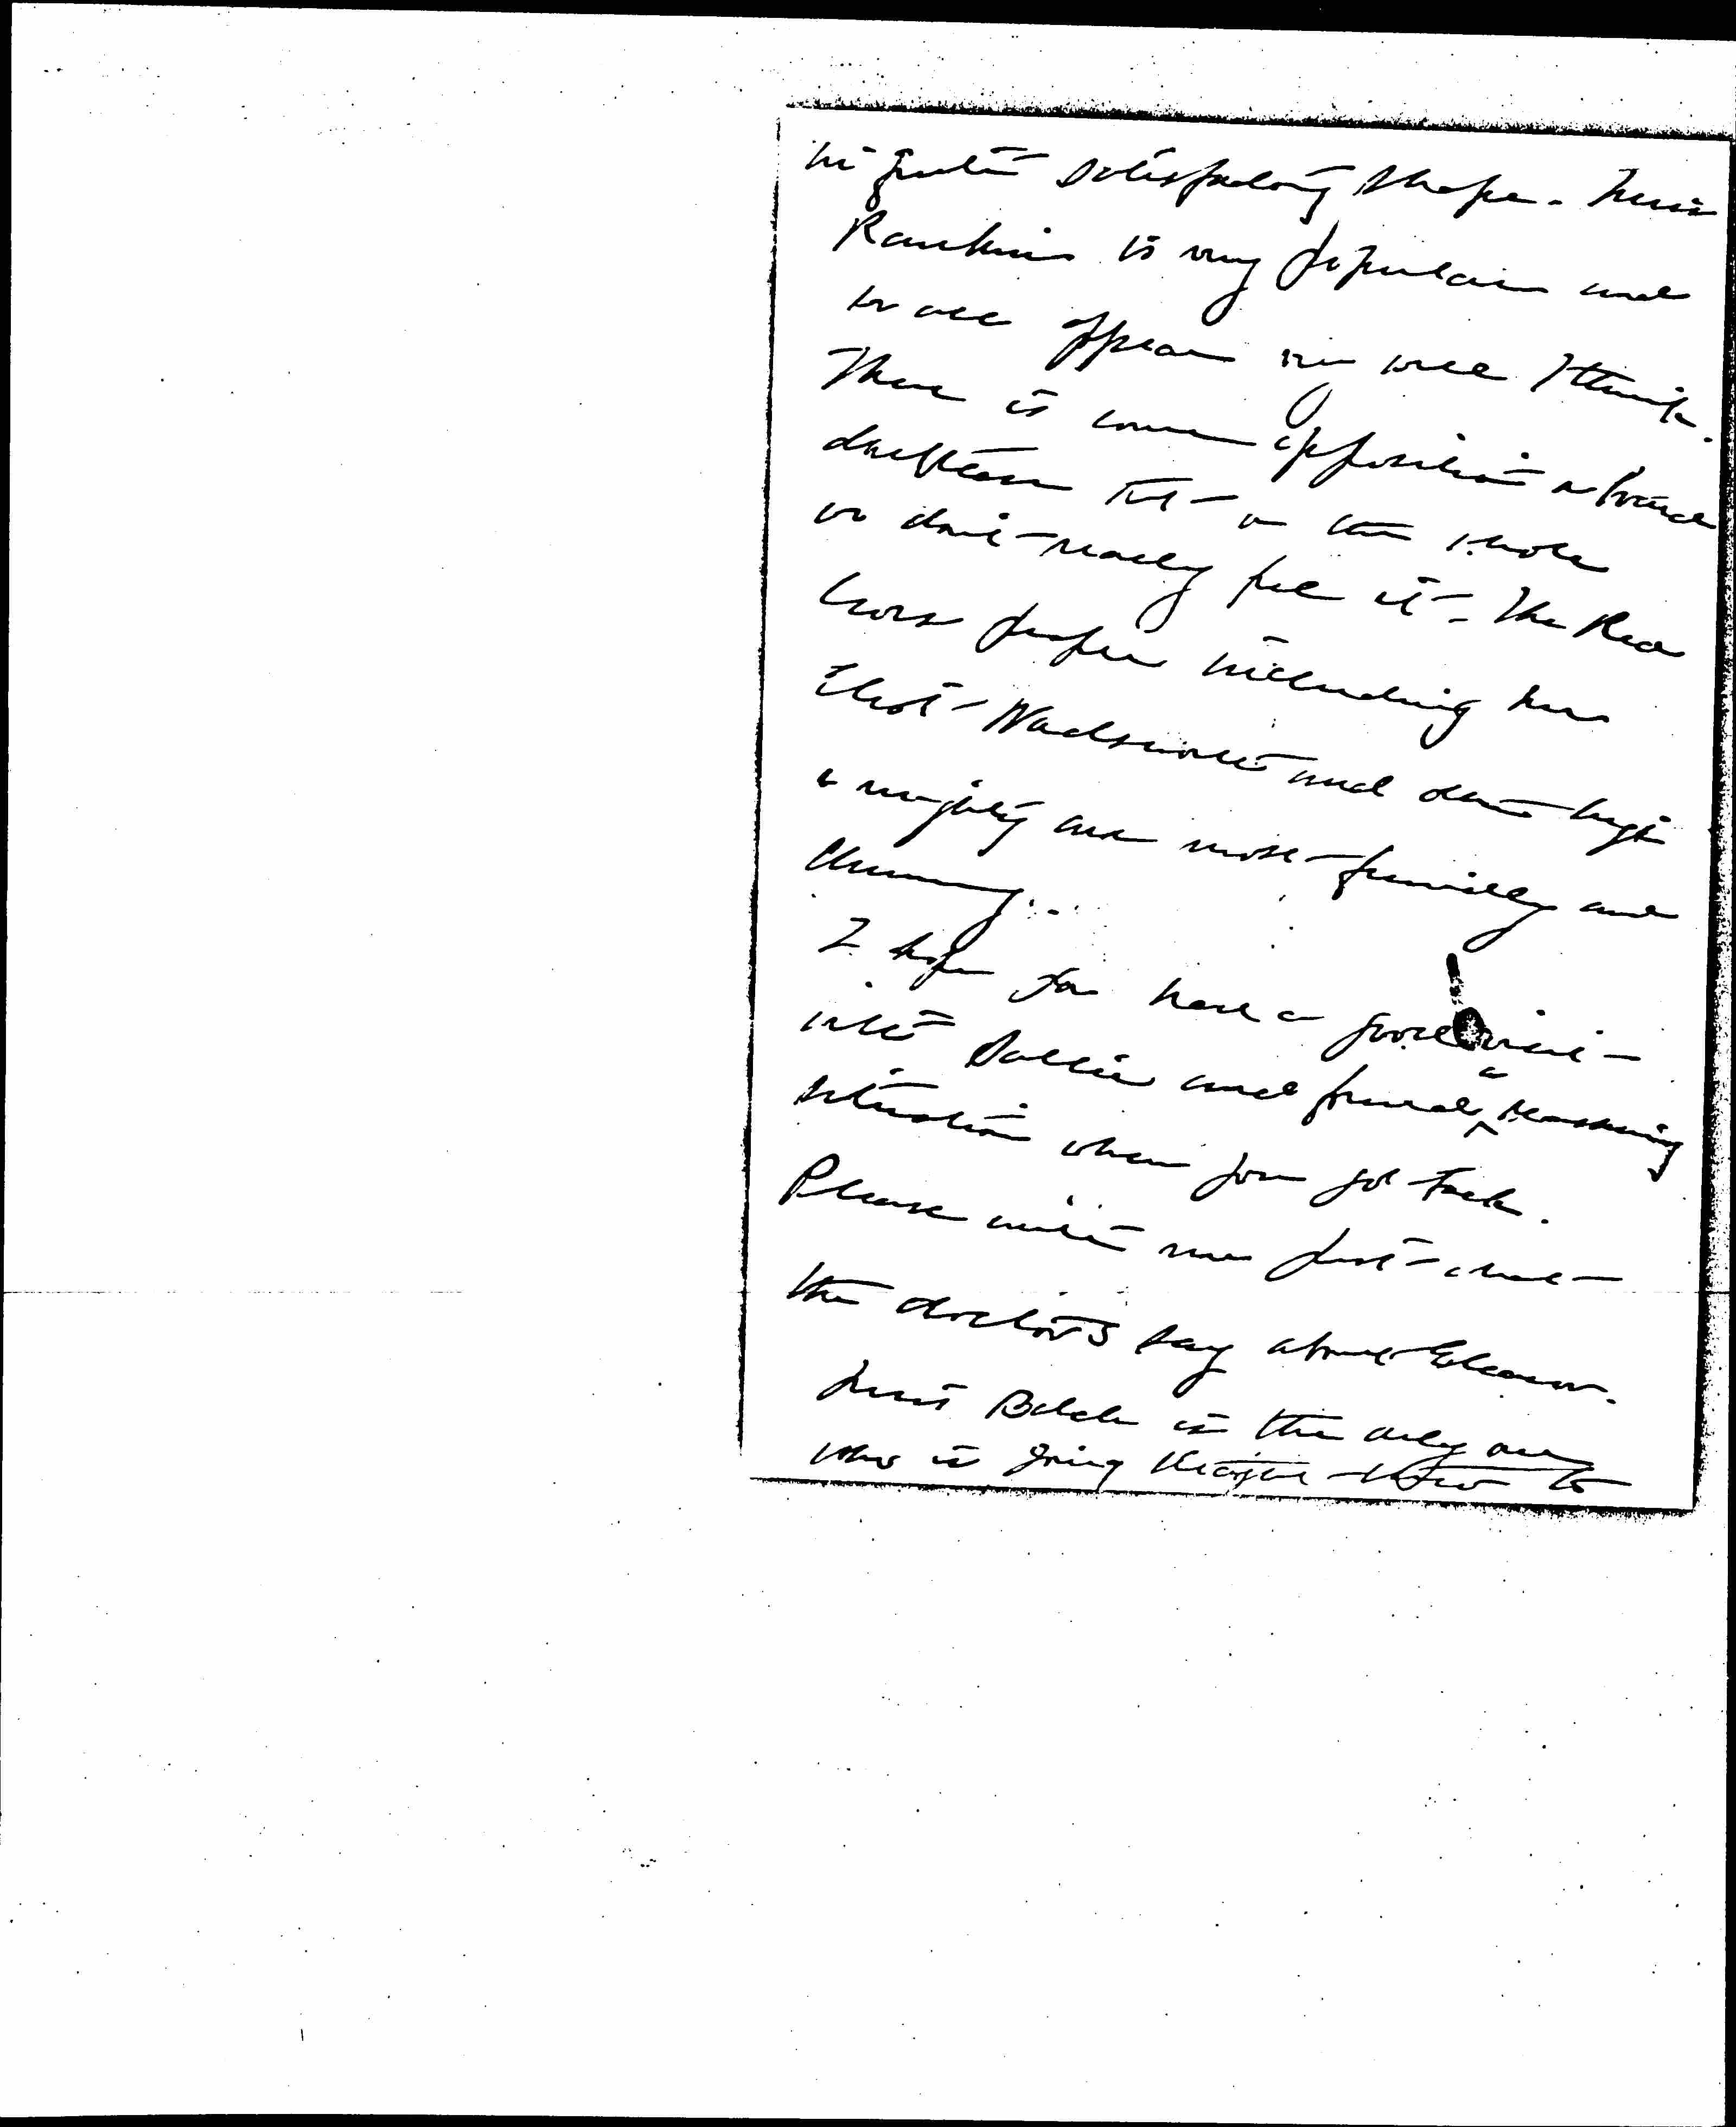 in quite satisfactory shape. Miss
Rankin is very popular and
we all appear very well I think.
There is some opposition
but on the whole
we don't really feel it. The Red
Cross people including Mrs
Eliot Wadsworth and other high
a mighty are most friendly and
chummy.
I hope you had a good visit
with Sallie and found a pleasing
situation when you got back.
Please write me just what
the doctors say about Eleanor.
Miss Balch is the only one
who is going to